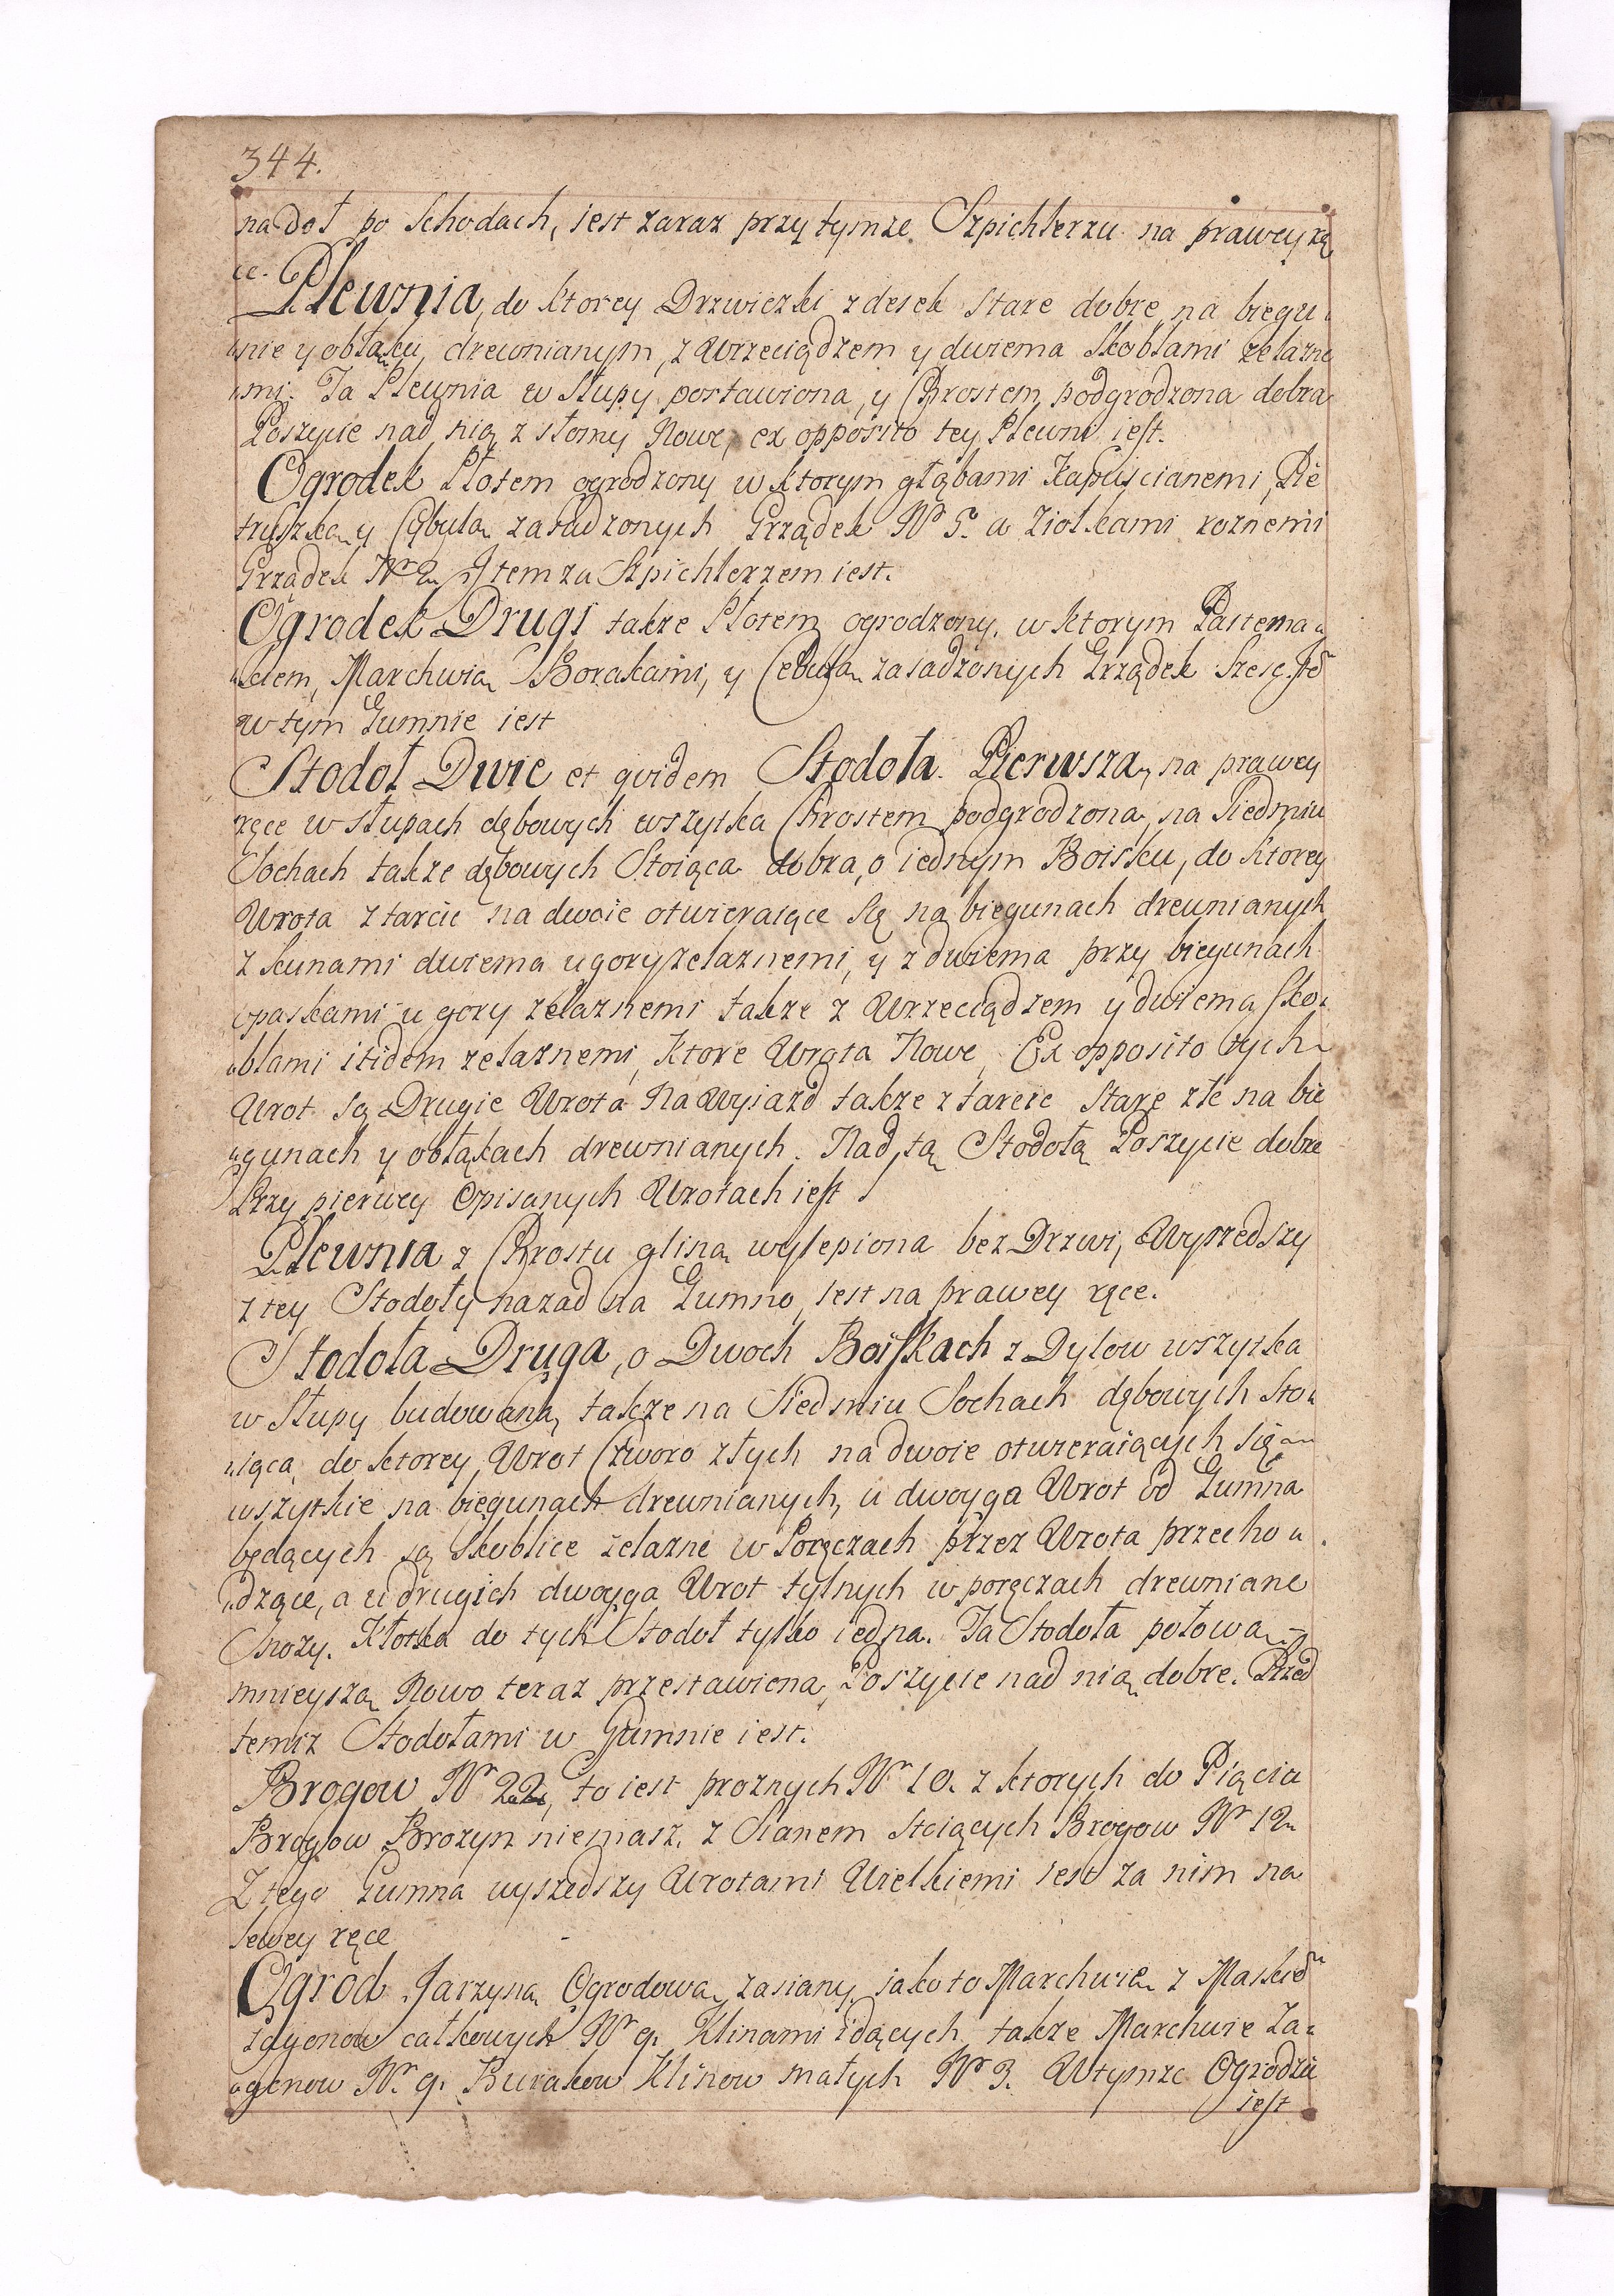 344.
na doł po Schodach, iest zaraz przy tymze Szpichlerzu na prawey rę
ce.
Plewnia, do ktorey Drzwiczki z desek stare dobre na biegu
nie y obłąku drewnianym, z Wrzeciądzem y dwiema Skoblami zelazne
mi. Ta Plewnia w Słupy postawiona, y Chrostem podgrodzona dobra
Poszycie nad nią z słomy Nowe, ex opposito tey Plewni iest.
Ogrodek Płotem ogrodzony w ktorym głąbami Kapuscianemi, Pie
truszką y Cybulą zasadzonych Grządek Nr 5. a Ziołkami roznemi
Grządek Nr 2. Item za Szpichlerzem iest.
Ogrodek Drugi takze Płotem ogrodzony, w ktorym Pasterna
kiem, Marchwią Borakami, y Cebulą zasadzonych Grządek Szesc.
w tym Gumnie iest
Stodoł Dwie et qvidem Stodoła Pierwsza, na prawey
ręce w słupach dębowych wszytka Chrostem podgrodzona, na Siedmiu
Sochach takze dębowych Stoiąca dobra, o iednym Boisku, do ktorey
Wrota z tarcic na dwoie otwieraiące się na biegunach drewnianych
z kunami dwiema u gory zelaznemi, y z dwiema przy biegunach
opaskami u gory zelaznemi takze z Wrzeciądzem y dwiema sko
blami itidem zelaznemi, ktore Wrota Nowe, Ex opposito tych
Wrot są Drugie Wrota Na Wyiazd takze z tarcic Stare złe na bie
gunach y obłąkach drewnianych. Nad tą Stodołą Poszycie dobre
Przy pierwey Opisanych Wrotach iest
Plewnia z Chrostu gliną wylepiona bez Drzwi, Wyszedszy
z tey Stodoły nazad na Gumno, iest na prawey ręce.
Stodoła Druga, o Dwoch Boiskach z Dylow wszytka
w Słupy budowana, takze na Siedmiu Sochach dębowych sto
iąca, do ktorey Wrot Czworo złych na dwoie otwieraiących się
wszytkie na biegunach drewnianych, u dwoyga Wrot od Gumna
będących są Skoblice zelazne w Poręczach przez Wrota przecho
dzące, a u drugich dwoyga Wrot tylnych w poręczach drewniane
Snozy. Kłotka do tych Stodoł tylko iedna. Ta Stodoła połowa
mnieyszą Nowo teraz przestawiona, Poszycie nad nią dobre. Przed
temiz Stodołami w Gumnie iest.
Brogow Nr 22, to iest proznych Nr 10. z ktorych do Piąciu
Brogow Brozyn niemasz. z Sianem Stoiących Brogow Nr 12
Z tego Gumna wyszedszy Wrotami Wielkiemi iest za nim na
lewey ręce
Ogrod Jarzyną Ogrodową zasiany, jako to Marchwią z Makiem
Zagonow całkowych Nr 9. Klinami idących takze Marchwie Za
gonow Nr. 9. Burakow Klinow małych Nr 3. W tymze Ogrodzie
iest